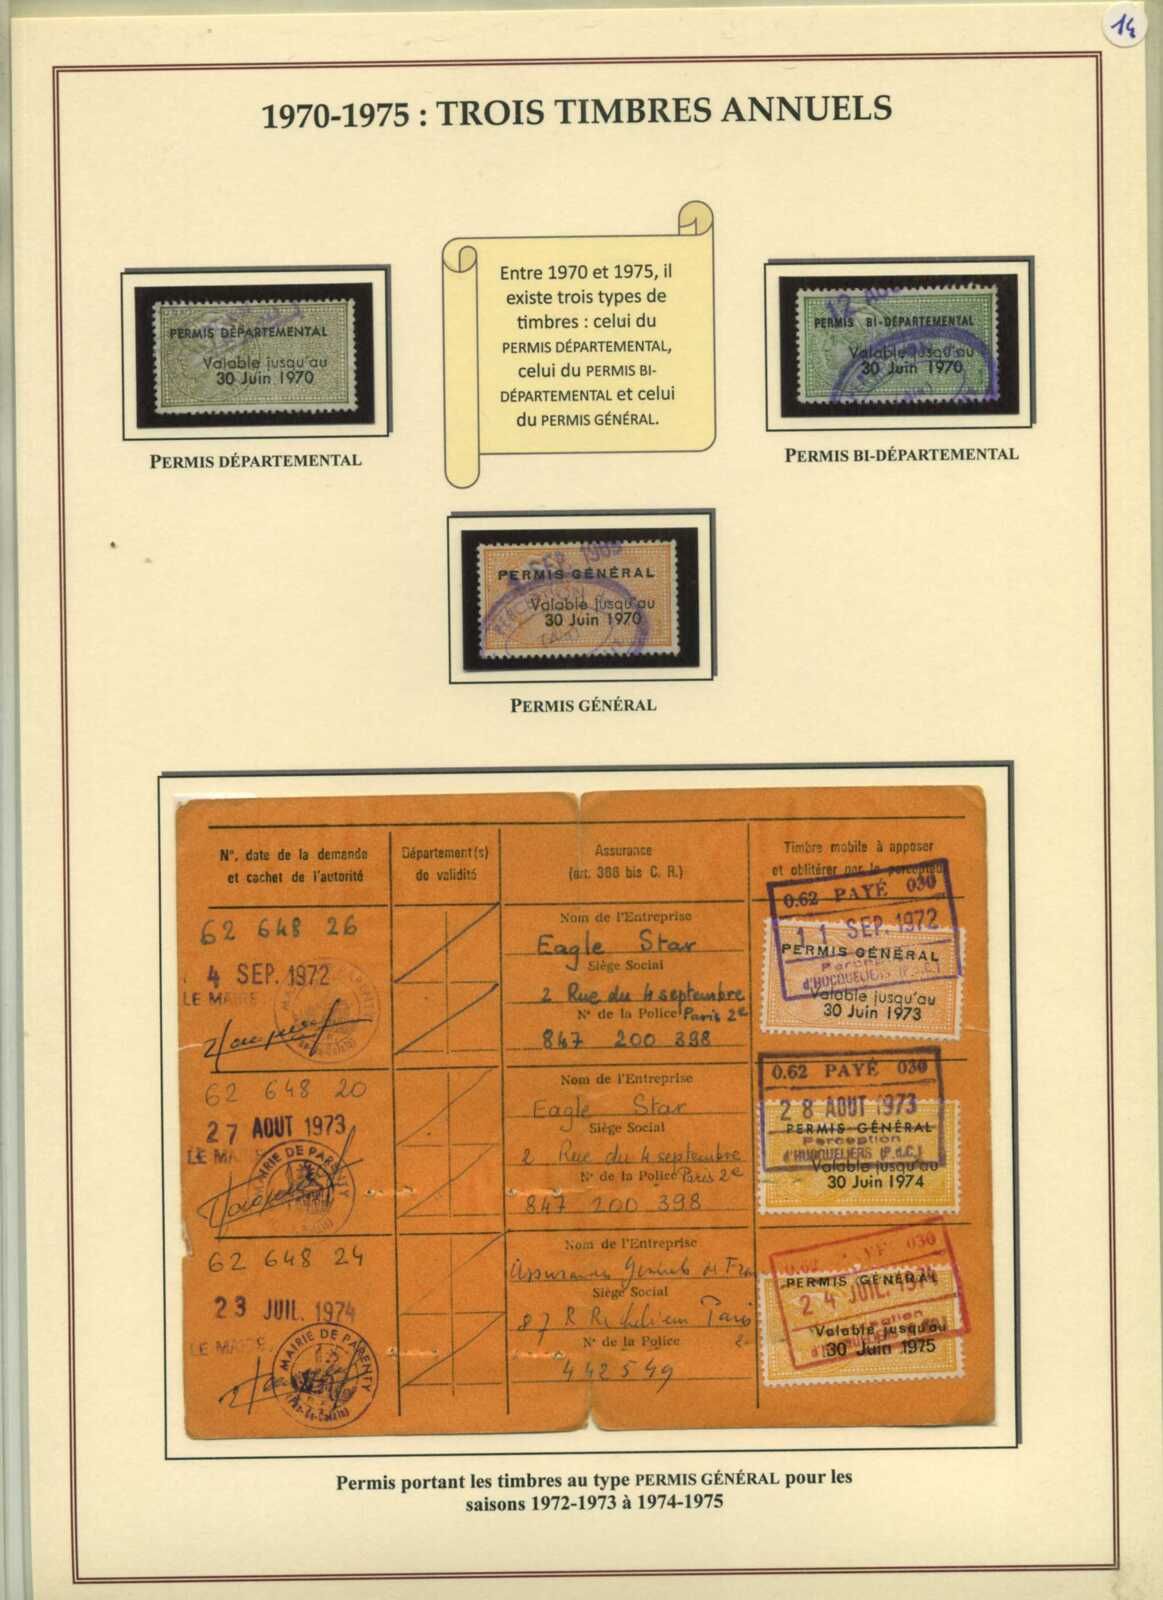 14
1970-1975 : TROIS TIMBRES ANNUELS
PERMIS DÉPARTEMENTAL
Valable jusqu'au
30 Juin 1970
PERMIS DÉPARTEMENTAL
Entre 1970 et 1975, il
existe trois types de
timbres : celui du
PERMIS DÉPARTEMENTAL,
celui du PERMIS BI-
DÉPARTEMENTAL et celui
du PERMIS GÉNÉRAL.
12
PERMIS BI-DÉPARTEMENTAL
Valable jusqu'au
30 Juin 1970
PERMIS BI-DÉPARTEMENTAL
SEP. 1969
PERMIS GÉNÉRAL
Valable jusqu'au
30 Juin 1970
PERMIS GÉNÉRAL
N°, date de la demande
et cachet de l'autorité
Département(s)
de validité
Assurance
(art. 366 bis C. R.)
Timbre mobile à apposer
et oblitérer par le percepteur
62 648 26
4 SEP. 1972
LE MAIRE
Nom de l'Entreprise
Eagle Star
Siège Social
2 Rue du 4 septembre
N° de la Police Paris 2e
847 200 398
0.62 PAYÉ 030
11 SEP. 1972
PERMIS GÉNÉRAL
Perception
d'HUCQUELIERS (P.d.C.)
Valable jusqu'au
30 Juin 1973
62 648 20
27 AOUT 1973
LE MAIRE
MAIRIE DE PARENTY
Nom de l'Entreprise
Eagle Star
Siège Social
2 Rue du 4 septembre
N° de la Police Paris 2e
847 200 398
0.62 PAYÉ 030
28 AOUT 1973
PERMIS GÉNÉRAL
Perception
d'HUCQUELIERS (P.d.C.)
Valable jusqu'au
30 Juin 1974
62 648 24
23 JUIL. 1974
LE MAIRE
MAIRIE DE PARENTY
(Pas-de-Calais)
Nom de l'Entreprise
Assurances Générales de
Siège Social
87 R Richelieu Paris
N° de la Police
442549
0.62 PAYÉ 030
PERMIS GÉNÉRAL
24 JUIL. 1974
Perception
Valable jusqu'au
30 Juin 1975
Permis portant les timbres au type PERMIS GÉNÉRAL pour les
saisons 1972-1973 à 1974-1975